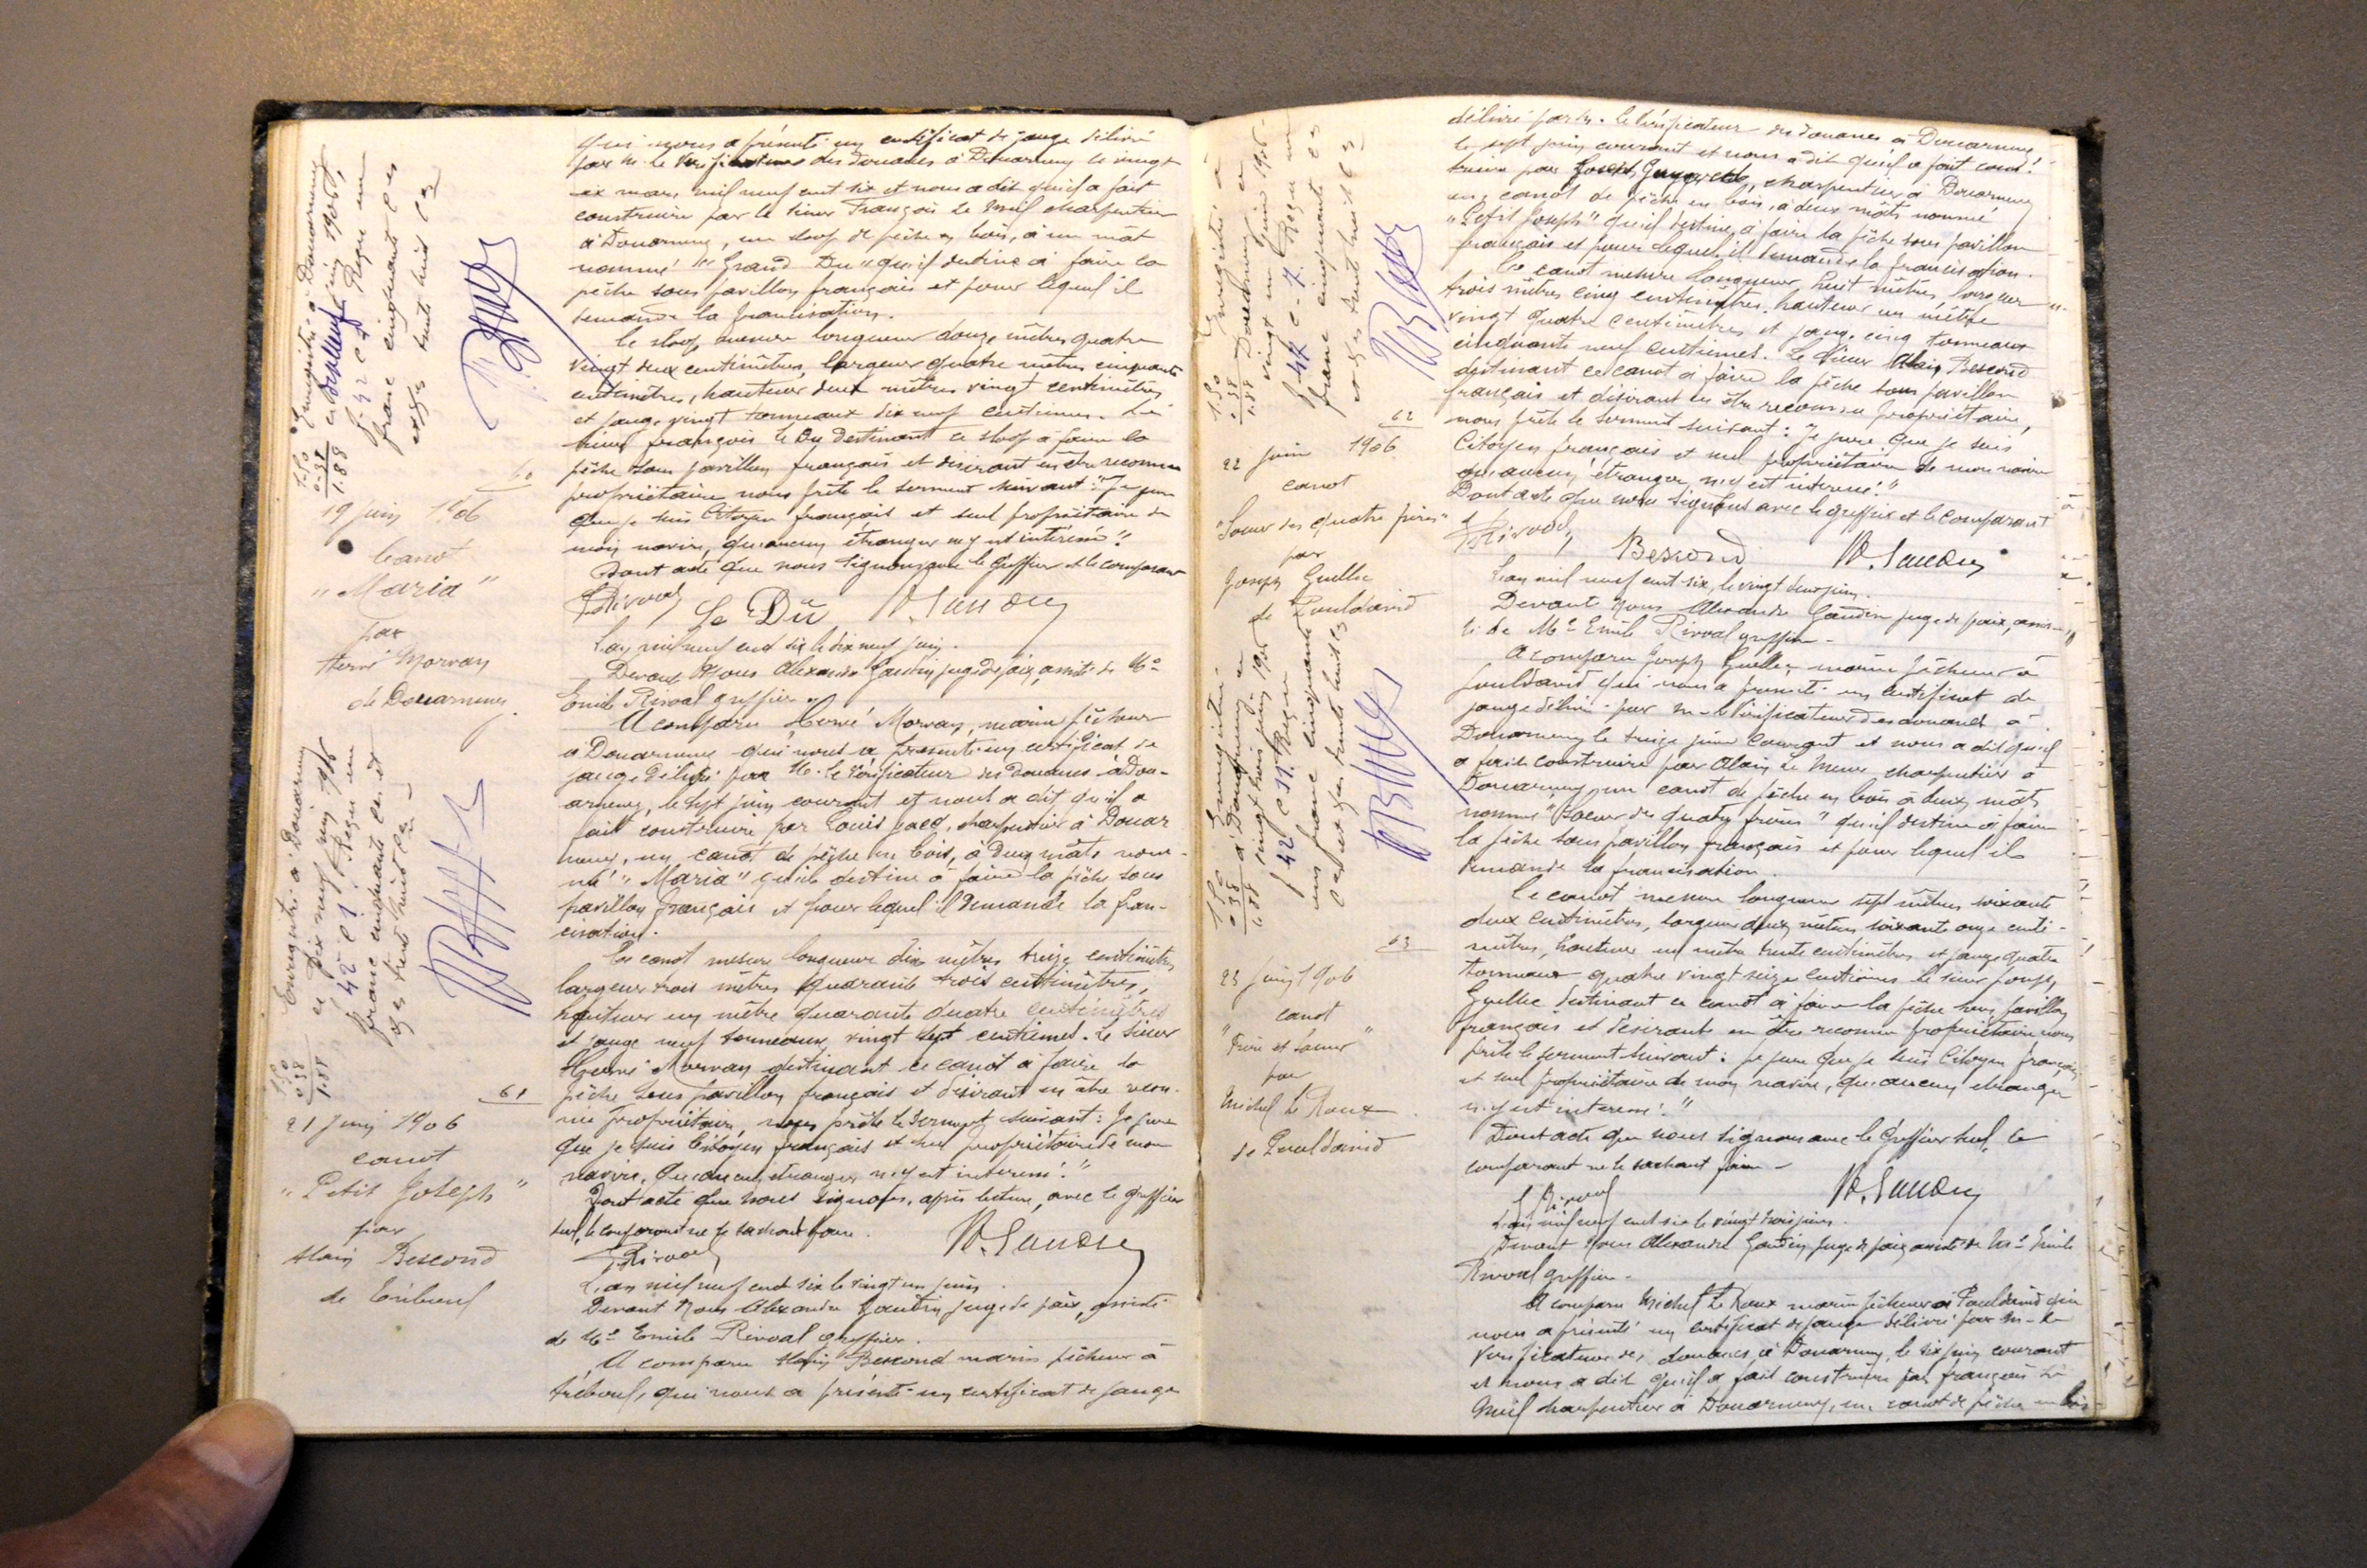 qui nous a présenté un certificat de jauge délivré
par M. le Vérificateur des douanes à Douarnenez le vingt
six mars mil neuf cent six et nous a dit qu'il a fait
construire par le sieur François Le Meil charpentier
à Douarnenez, un sloop de pêche en bois, à un mât
nommé "Grand Du" qu'il destine à faire la
pêche sous pavillon français et pour lequel il
demande la francisation.
Le sloop mesure longueur douze mètres quatre
vingt deux centimètres, largeur quatre mètres cinquante
centimètres, hauteur deux mètres vingt centimètres
et jauge vingt tonneaux dix neuf centièmes. Le
sieur François Le Du destinant ce sloop à faire la
pêche sous pavillon français et désirant en être reconnu
propriétaire nous prête le serment suivant : "Je jure
que je suis Citoyen français et seul propriétaire de
mon navire, qu'aucun étranger n'y est intéressé."
Dont acte que nous signons avec le Greffier et le comparant
ERivoal Le Dû A. Gaudin
Enregistré à Douarnenez
le dix neuf juin 1906,
franc cinquante ces
trente huit ces
1.50
0.38
1.88
60
19 juin 1906
Canot
"Maria"
par
Hervé Morvan
de Douarnenez
L'an mil neuf cent six le dix neuf juin.
Devant Nous Alexandre Gaudin juge de paix, assisté de Me
Emile Rivoal greffier.
A comparu Hervé Morvan, marin pêcheur
à Douarnenez qui nous a présenté un certificat de
jauge délivré par M. le Vérificateur des douanes à Dou-
arnenez, le sept juin courant et nous a dit qu'il a
fait construire par Louis Jacq, charpentier à Douar
nenez, un canot de pêche en bois, à deux mâts nom-
mé "Maria" qu'il destine à faire la pêche sous
pavillon français et pour lequel il demande la fran-
cisation.
Ce canot mesure longueur dix mètres treize centimètres,
largeur trois mètres quarante trois centimètres,
hauteur un mètre quarante quatre centimètres
et jauge neuf tonneaux vingt sept centièmes. Le sieur
Hervé Morvan destinant ce canot à faire la
pêche sous pavillon français et désirant en être recon-
nu propriétaire, nous prête le serment suivant : Je jure
que je suis Citoyen français et seul propriétaire de mon
navire, qu'aucun étranger n'y est intéressé."
Dont acte que nous signons, après lecture, avec le greffier
seul, le comparant ne le sachant faire.
ERivoal A. Gaudin
Enregistré à Douarnenez
le dix neuf juin 1906
franc cinquante ces et
trente huit ces
1.50
0.38
1.88
61
21 juin 1906
canot
"Petit Joseph"
par
Alain Bescond
de Tréboul
L'an mil neuf cent six le vingt un juin.
Devant Nous Alexandre Gaudin juge de paix, assisté
de Me Emile Rivoal greffier.
A comparu Alain Bescond marin pêcheur à
Tréboul, qui nous a présenté un certificat de jauge
délivré par M. le Vérificateur des douanes à Douarnenez
le sept juin courant et nous a dit qu'il a fait cons-
truire par Joseph, charpentier à Douarnenez
un canot de pêche en bois, à deux mâts nommé
"Petit Joseph" qu'il destine à faire la pêche sous pavillon
français et pour lequel il demande la francisation.
Ce canot mesure longueur huit mètres, largeur
trois mètres cinq centimètres, hauteur un mètre
vingt quatre centimètres et jauge cinq tonneaux
cinquante neuf centièmes. Le sieur Alain Bescond
destinant ce canot à faire la pêche sous pavillon
français et désirant en être reconnu propriétaire,
nous prête le serment suivant : "Je jure que je suis
Citoyen français et seul propriétaire de mon navire
qu'aucun étranger n'y est intéressé."
Dont acte que nous signons avec le greffier et le comparant
ERivoal Bescond A. Gaudin
Enregistré à
Douarnenez le
vingt un juin 1906
franc cinquante ces
trente huit ces
1.50
0.38
1.88
62
22 juin 1906
canot
"Soeur des quatre frères"
par
Joseph Guellec
de Pouldavid
L'an mil neuf cent six, le vingt deux juin.
Devant Nous Alexandre Gaudin juge de paix, assis-
té de Me Emile Rivoal greffier.
A comparu Joseph Guellec marin pêcheur à
Pouldavid qui nous a présenté un certificat de
jauge délivré par M. le Vérificateur des douanes à
Douarnenez le treize juin courant et nous a dit qu'il
a fait construire par Alain Le Meur charpentier à
Douarnenez, un canot de pêche en bois à deux mâts
nommé "Soeur des quatre frères" qu'il destine à faire
la pêche sous pavillon français et pour lequel il
demande la francisation.
Ce canot mesure longueur sept mètres soixante
deux centimètres, largeur deux mètres soixante onze centi-
mètres, hauteur un mètre trente centimètres et jauge quatre
tonneaux quatre vingt seize centièmes. Le sieur Joseph
Guellec destinant ce canot à faire la pêche sous pavillon
français et désirant en être reconnu propriétaire nous
prête le serment suivant : Je jure que je suis Citoyen français
et seul propriétaire de mon navire, qu'aucun étranger
n'y est intéressé."
Dont acte que nous signons avec le Greffier seul, le
comparant ne le sachant faire -
ERivoal A. Gaudin
Enregistré
à Douarnenez le
vingt trois juin 1906
un franc cinquante
ces et trente huit ces
1.50
0.38
1.88
63
23 juin 1906
canot
"Frère et soeur"
par
Michel Le Roux
de Pouldavid
L'an mil neuf cent six le vingt trois juin.
Devant Nous Alexandre Gaudin juge de paix assisté de Me Emile
Rivoal greffier.
A comparu Michel Le Roux marin pêcheur à Pouldavid qui
nous a présenté un certificat de jauge délivré par M. le
Vérificateur des douanes, à Douarnenez, le six juin courant
et nous a dit qu'il a fait construire par François Le
Meil charpentier à Douarnenez, un canot de pêche en bois